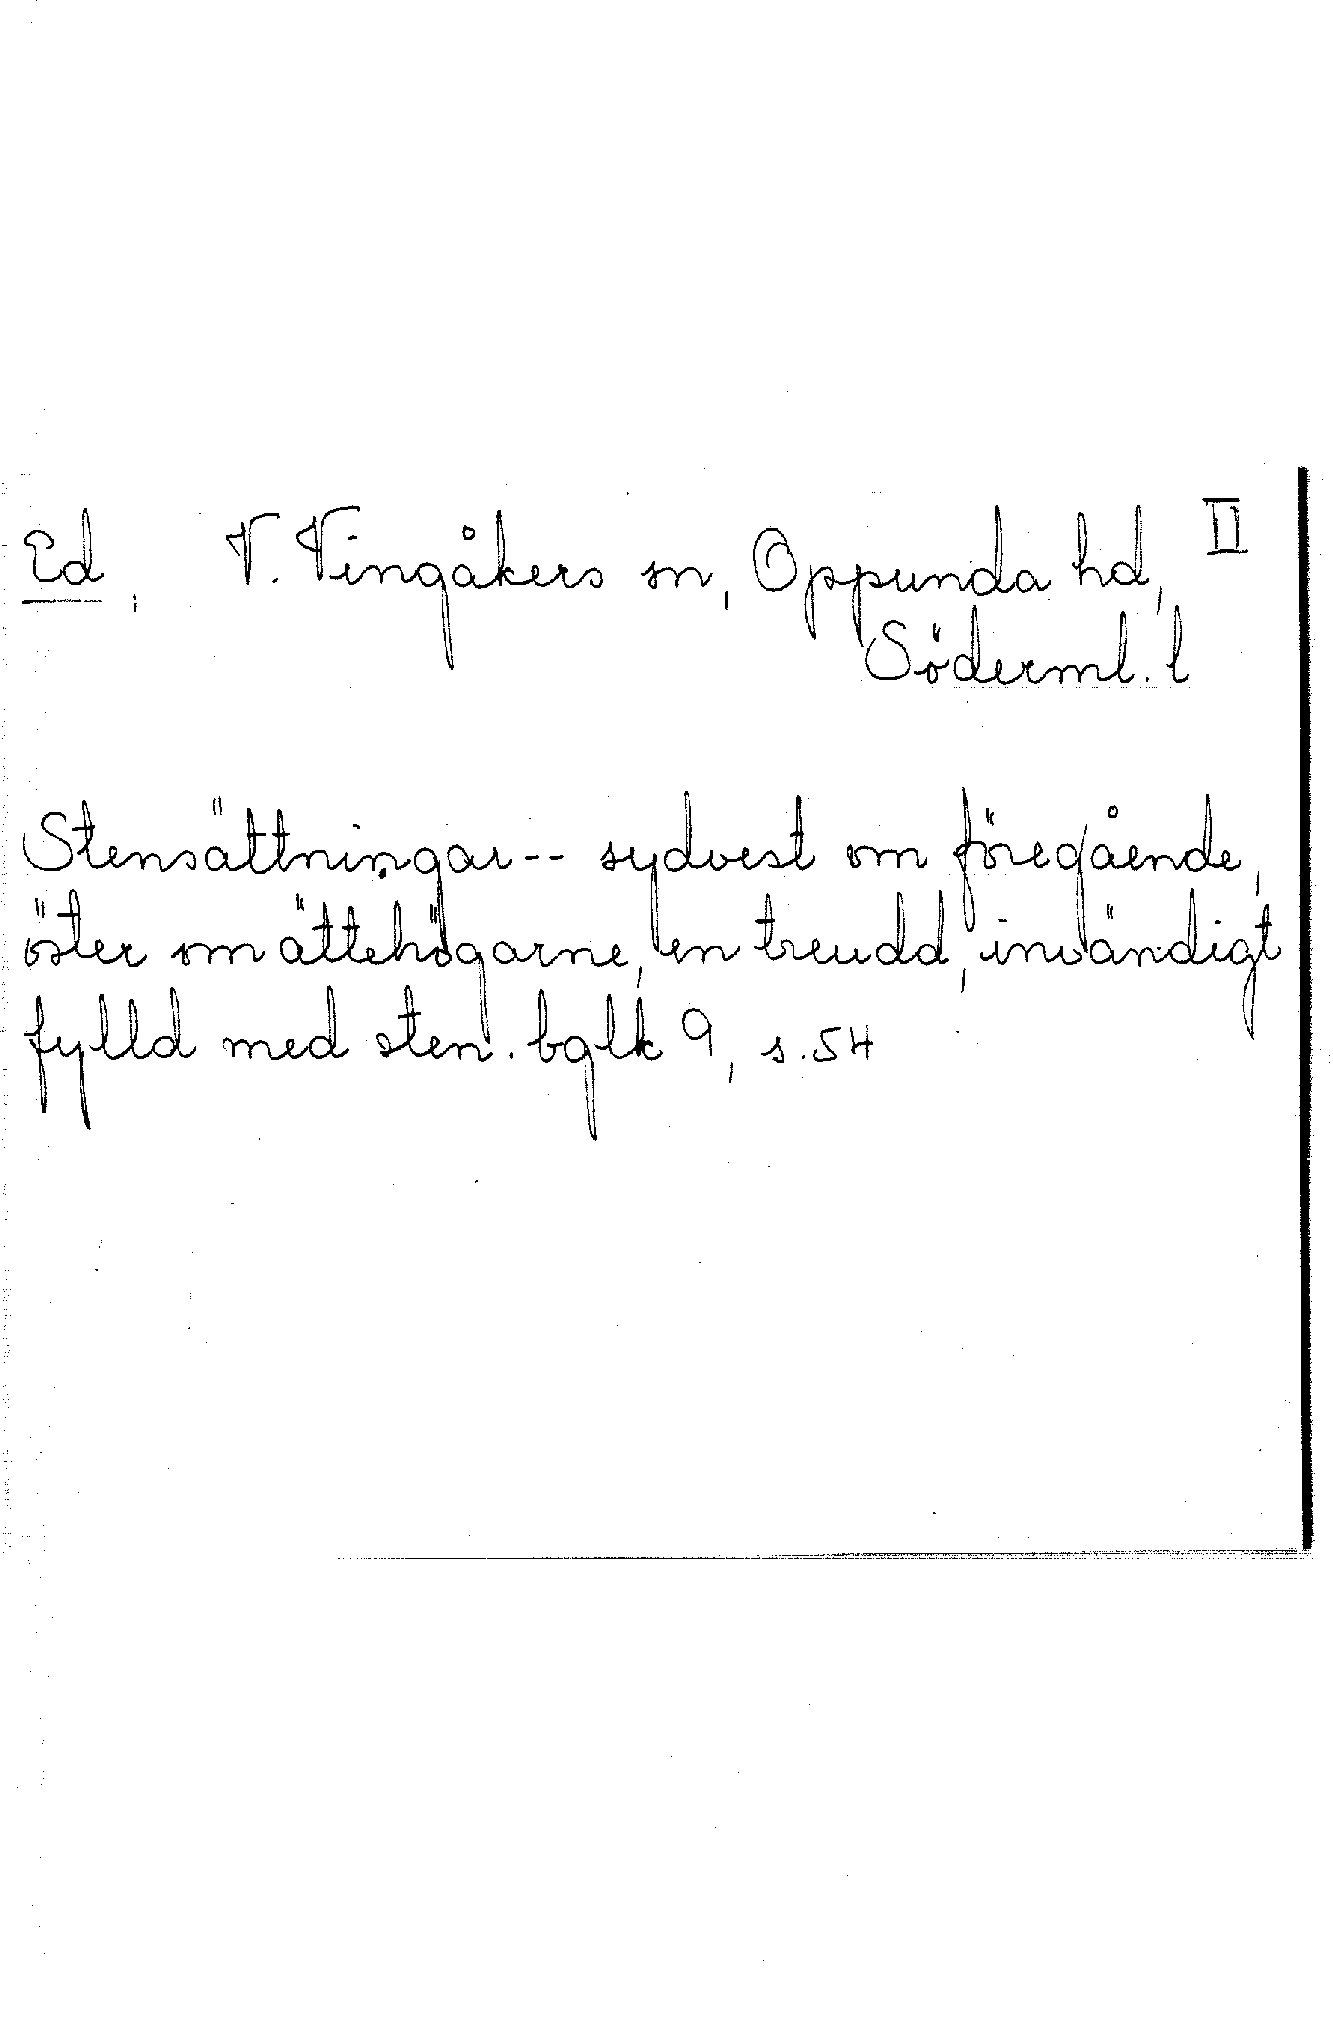 Ed, V. Vingåkers sn, Oppunda hd, II
Söderml. l
Stensättningar -- sydvest om föregående,
öster om ättehögarne, en treudd, invändigt
fylld med sten. bglk 9, s. 54